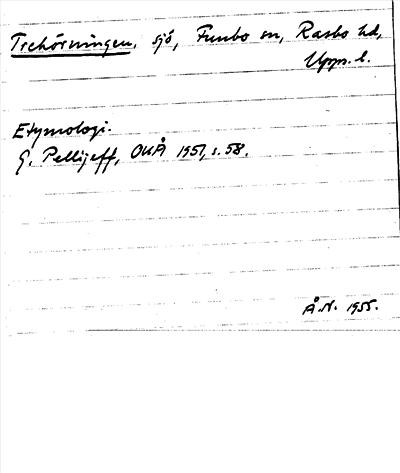 Trehörningen, sjö, Funbo sn, Rasbo hd,
Upps. l.
Etymologi.
G. Pellijeff, OUÅ 1951, s. 58.
Å.N. 1955.